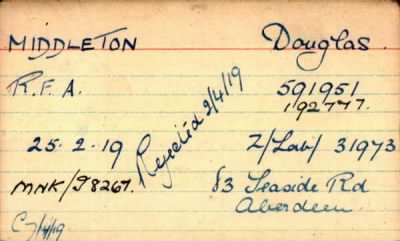 MIDDLETON Douglas.
R.F.A. 591951
192777.
Rejected 2/4/19
25-2-19 Z/Lab/ 31973
MNK/98267. 83 Seaside Rd
Aberdeen.
C7/4/19